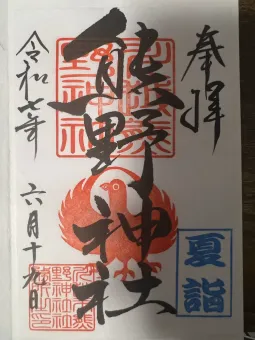 奉拝
夏詣
熊野神社
令和七年 六月十九日